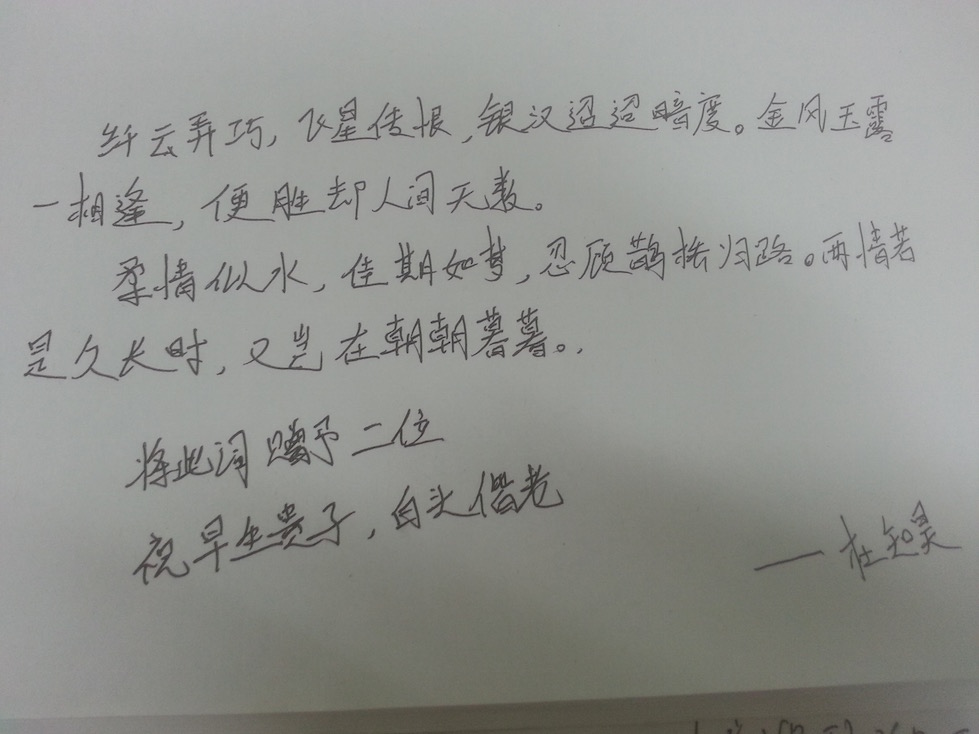 纤云弄巧，飞星传恨，银汉迢迢暗度。金风玉露
一相逢，便胜却人间无数。
柔情似水，佳期如梦，忍顾鹊桥归路。两情若
是久长时，又岂在朝朝暮暮。.
将此词赠予二位
祝早生贵子，白头偕老
——杜知昊